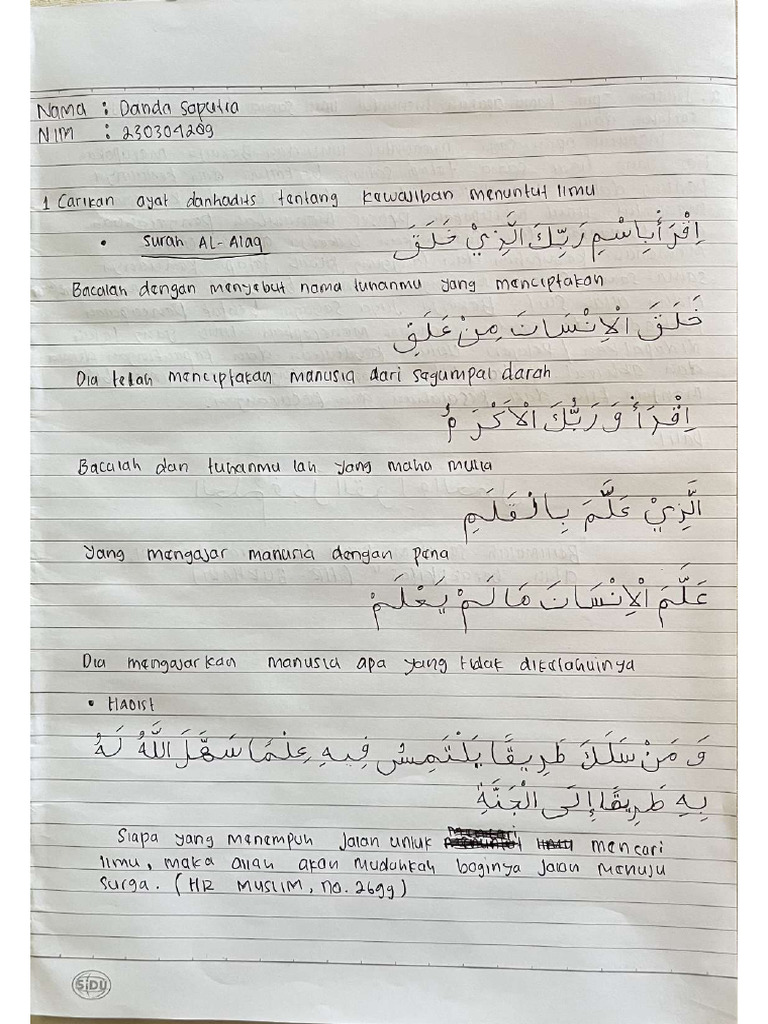 Nama : Danda Saputra
NIM : 230304209
1 Carikan ayat danhadits tentang kewajiban menuntut ilmu
• Surah AL-Alaq اِقْرَأْ بِاسْمِ رَبِّكَ الَّذِيْ خَلَقَ
Bacalah dengan menyebut nama tuhanmu yang menciptakan
خَلَقَ الْاِنْسَانَ مِنْ عَلَقٍ
Dia telah menciptakan manusia dari segumpal darah
اِقْرَأْ وَرَبُّكَ الْاَكْرَمُ
Bacalah dan tuhanmu lah yang maha mulia
الَّذِيْ عَلَّمَ بِالْقَلَمِ
Yang mengajar manusia dengan pena
عَلَّمَ الْاِنْسَانَ مَا لَمْ يَعْلَمْ
Dia mengajarkan manusia apa yang tidak diketahuinya
• Hadist
وَمَنْ سَلَكَ طَرِيقًا يَلْتَمِسُ فِيهِ عِلْمًا سَهَّلَ اللَّهُ لَهُ
بِهِ طَرِيقًا إِلَى الْجَنَّةِ
Siapa yang menempuh jalan untuk mencari
ilmu, maka allah akan mudahkah baginya jalan menuju
surga. (HR MUSLIM, no. 2699)
SiDU